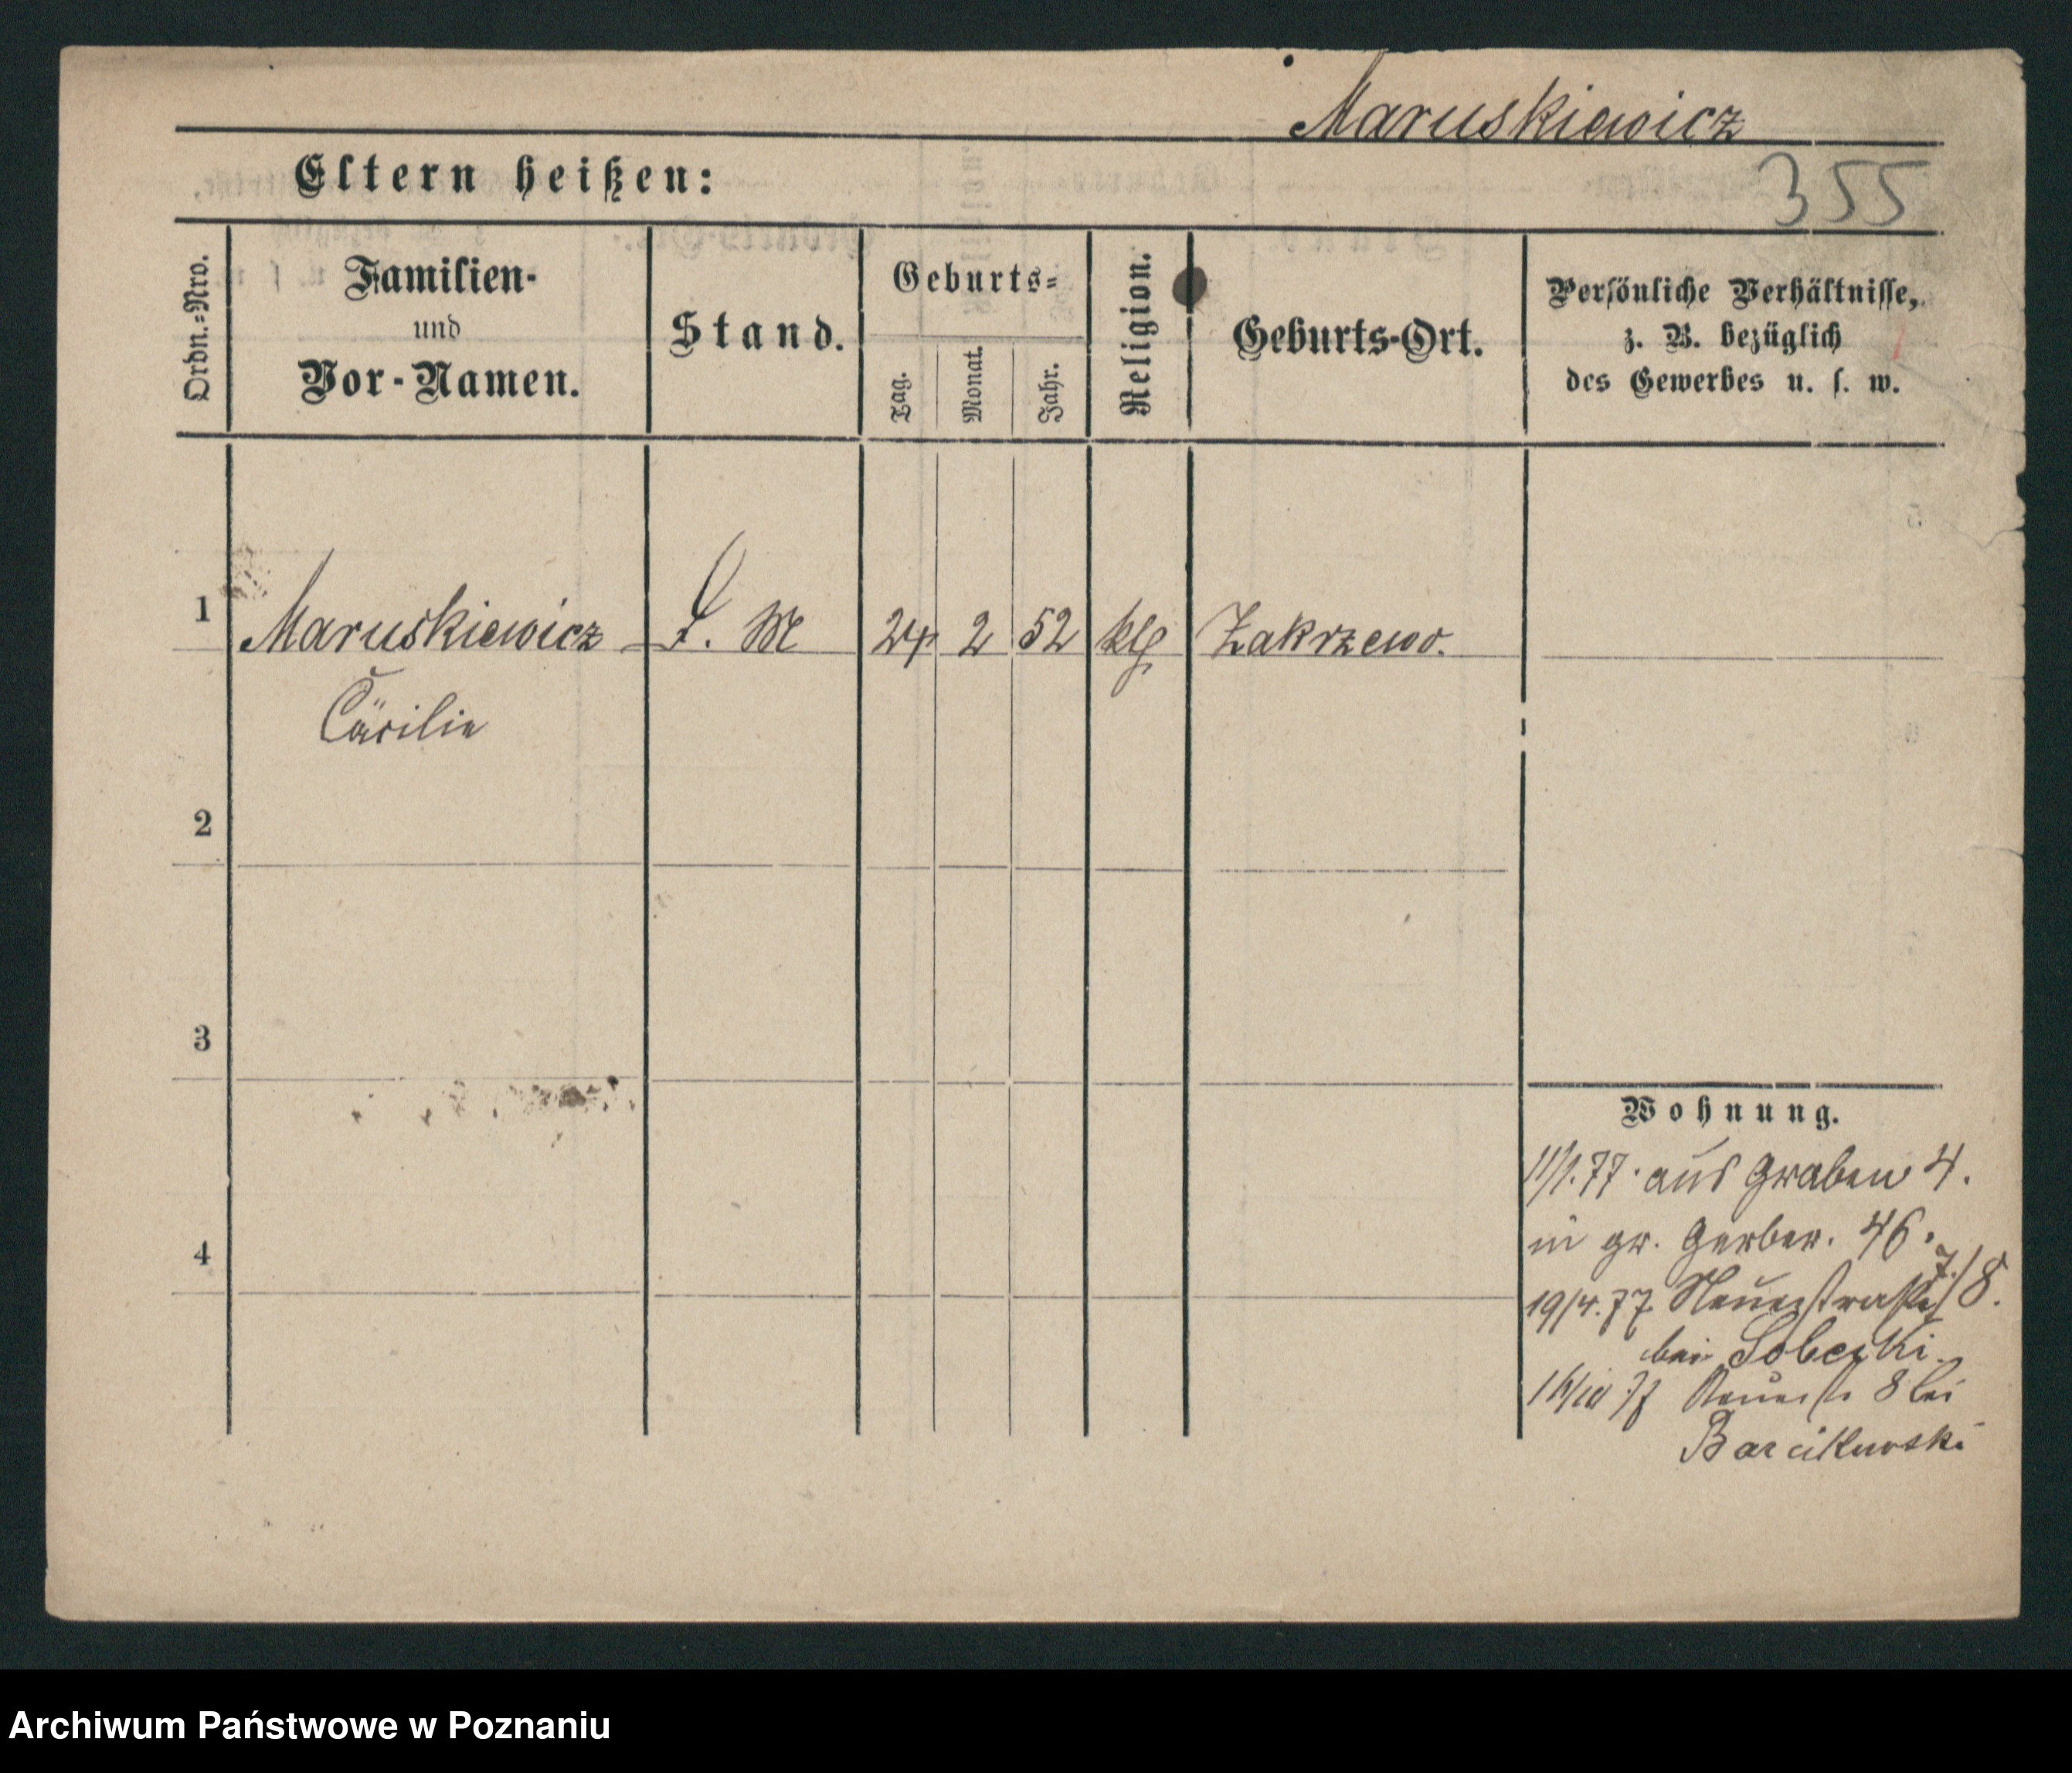 Maruskiewicz
Eltern heißen:
355
Ordn.-Nro.
Familien-
und
Vor-Namen.
Stand.
Geburts-
Tag.
Monat.
Jahr.
Religion.
Geburts-Ort.
Persönliche Verhältnisse,
z. B. bezüglich
des Gewerbes u. s. w.
1 Maruskiewicz D. M 24 2 52 kth Zakrzewo.
Cäcilie
2
3
4
Wohnung.
11/1.77. aus Graben 4.
in gr. Gerber. 46.
19/4.77. Neuestraße 7/8.
bei Sobecki.
77 Neuestr 8 bei
Barcikowski
Archiwum Państwowe w Poznaniu